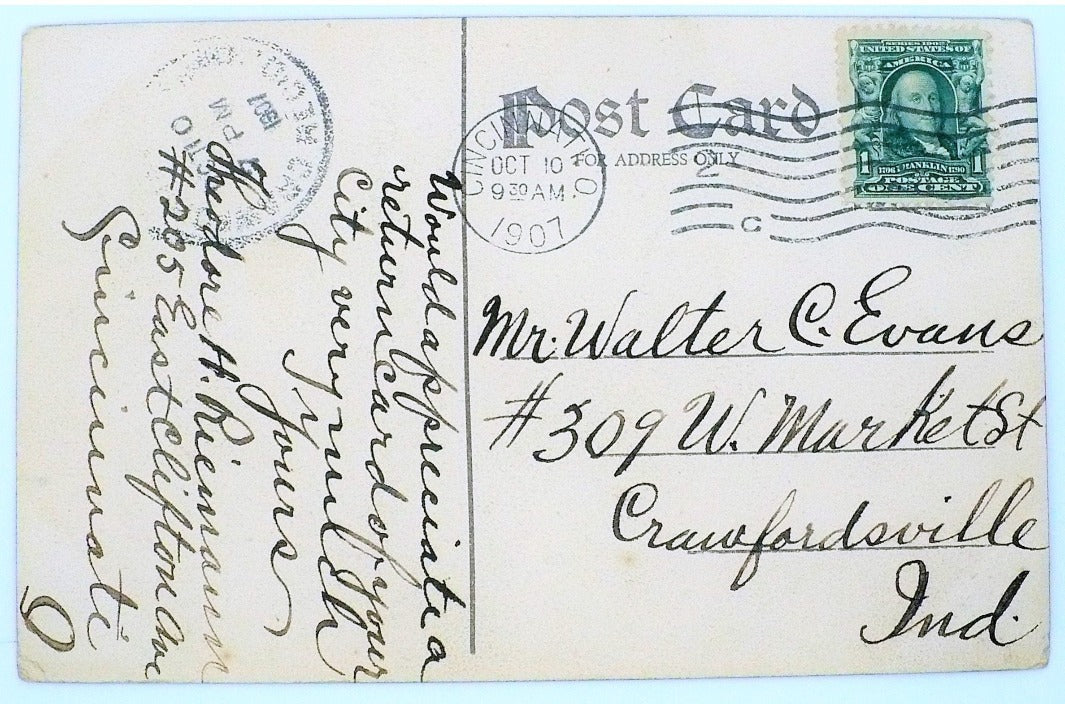 Post Card
FOR ADDRESS ONLY
SERIES 1902
UNITED STATES OF
AMERICA
1706 FRANKLIN 1790
1 POSTAGE 1
ONE CENT
CINCINNATI, O.
OCT 10
9 30 AM
1907
2
C
Mr. Walter C. Evans
#309 W. Market St
Crawfordsville
Ind.
Would appreciate a
return card of your
City very much
Yours
Theodore H. Riemann
#205 East Clifton Ave
Cincinnati
O
PM
1907